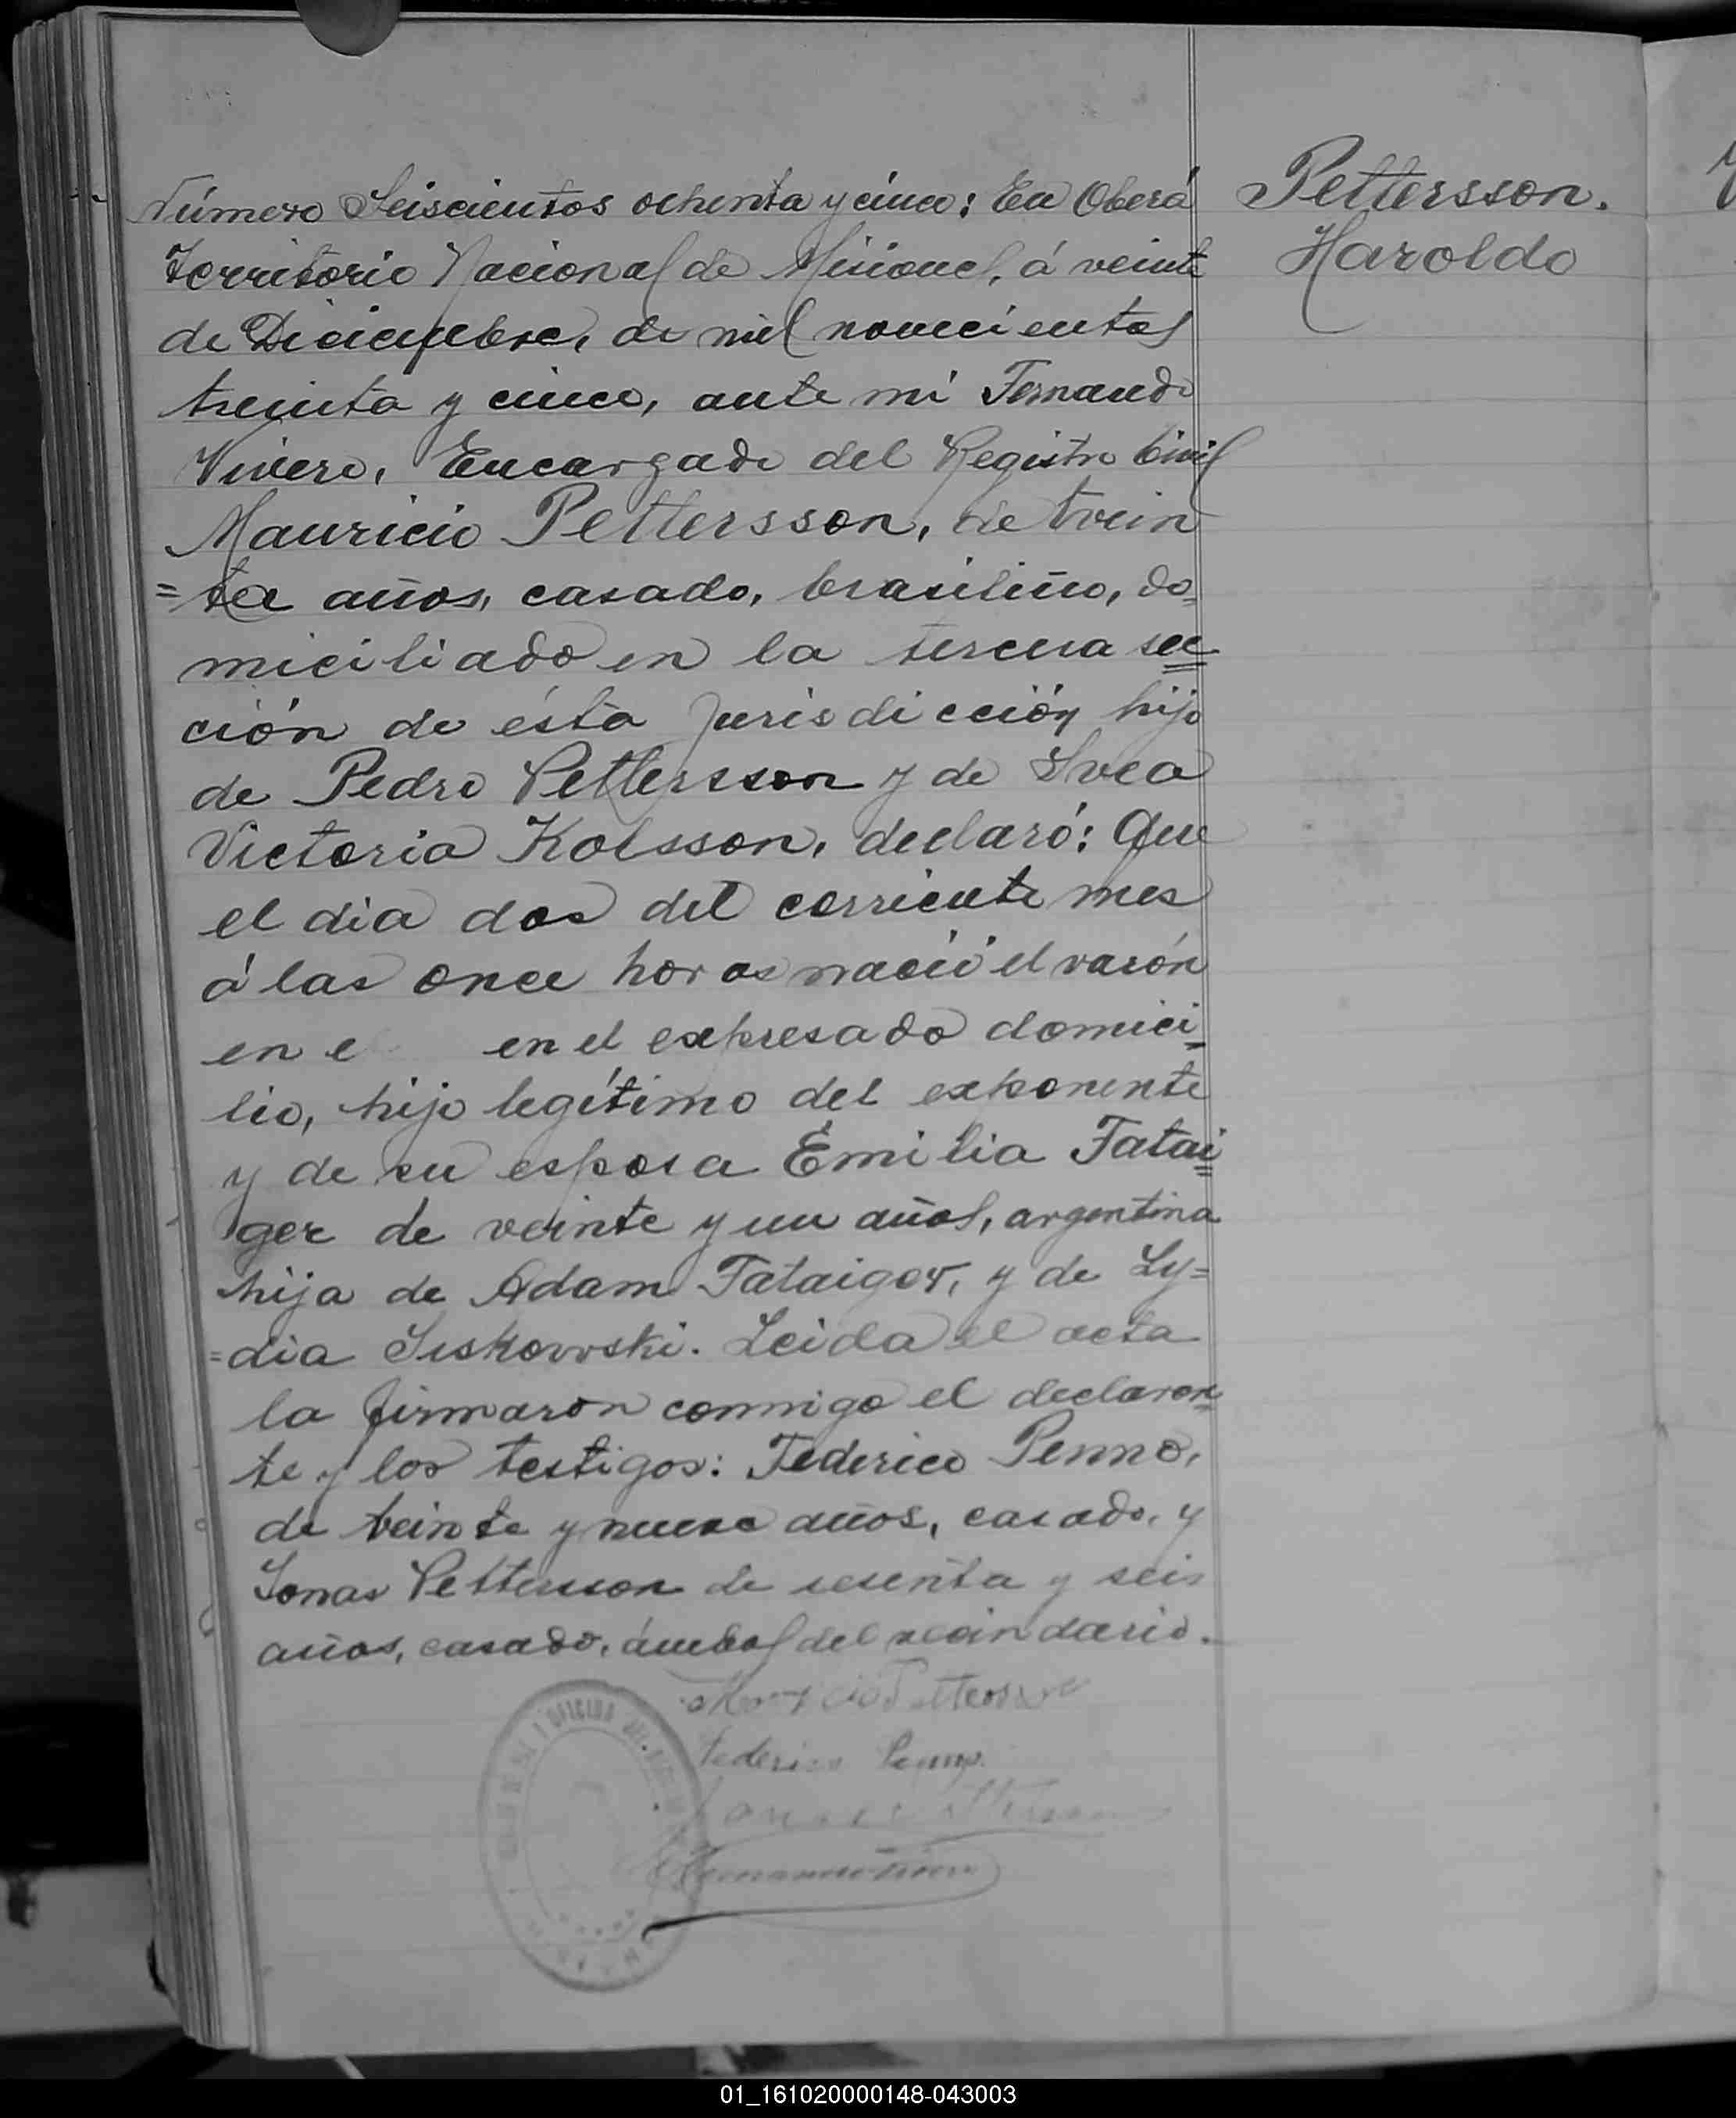 Número Seiscientos ochenta y cinco: En Oberá
Territorio Nacional de Misiones, á veinte
de Diciembre, de mil novecientos
treinta y cinco, ante mi Fernando
Vivero, Encargado del Registro Civil
Mauricio Pettersson, de trein
=ta años, casado, brasileño, do=
miciliado en la tercera sec=
ción de ésta jurisdicción hijo
de Pedro Pettersson y de Svea
Victoria Kolsson, declaró: Que
el dia dos del corriente mes
á las once horas nació el varón
en e en el expresado domici=
lio, hijo legítimo del exponente
y de su esposa Emilia Tatai=
ger de veinte y un años, argentina
hija de Adam Tataiger, y de Ly=
=dia Siskowski. Leida el acta
la firmaron conmigo el declaran=
te y los testigos: Federico Penno,
de veinte y nueve años, casado, y
Jonas Pettersson de sesenta y seis
años, casado, ámbos del vecindario.
Federico Penno.
Pettersson.
Haroldo
01_161020000148-043003